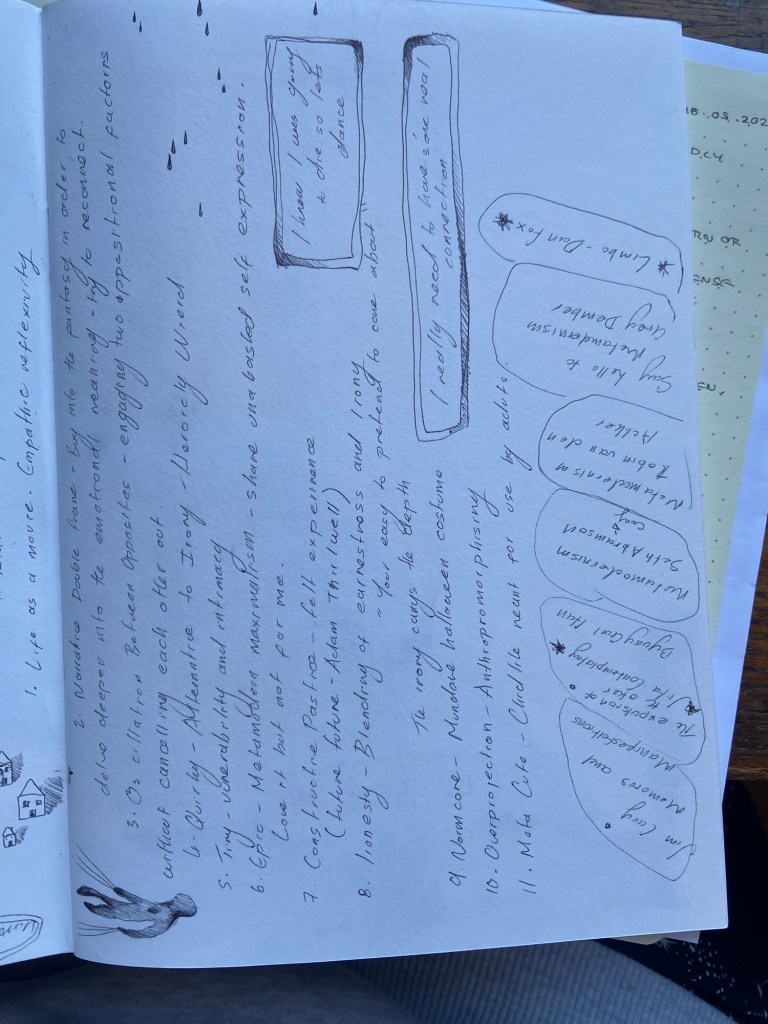 1. Life as a movie. Empathic reflexivity
2. Narrative Double Frame - Buy into the fantasy in order to
delve deeper into the emotional, meaning - try to reconnect.
3. Oscillation Between Opposites - engaging two oppositional factorns
without cancelling each other out.
4. Quirky - Alternative to Irony - Heroicly Wierd
5. Tiny - vulnerability and intimacy
6. Epic - Metamodern Maximalism - share unabashed self expression.
Love it but not for me.
7. Constructive Pastice - felt experience
(future future - Adam Thirlwell)
8. Ironesty - Blending of earnestness and Irony
"Your easy to pretend to care about"
The irony carrys the depth
9. Normcore - Mundane halloween costume
10. Overprojection - Anthropromorphising
11. Meta Cute - Childlike meant for use by adults.
I knew I was going
to die so lets
dance
I really need to have some real
connection
Jim Carry
Memores and
Manifestations
The expulsion of
the other
Vita Contemplativ
Byung Chul Han
Metamodernism
Seth Abramson
Metamodernism
Robin van den
Akker
Say hello to
Metamodernism
Greg Dember
Limbo - Dan Fox
18.09.202